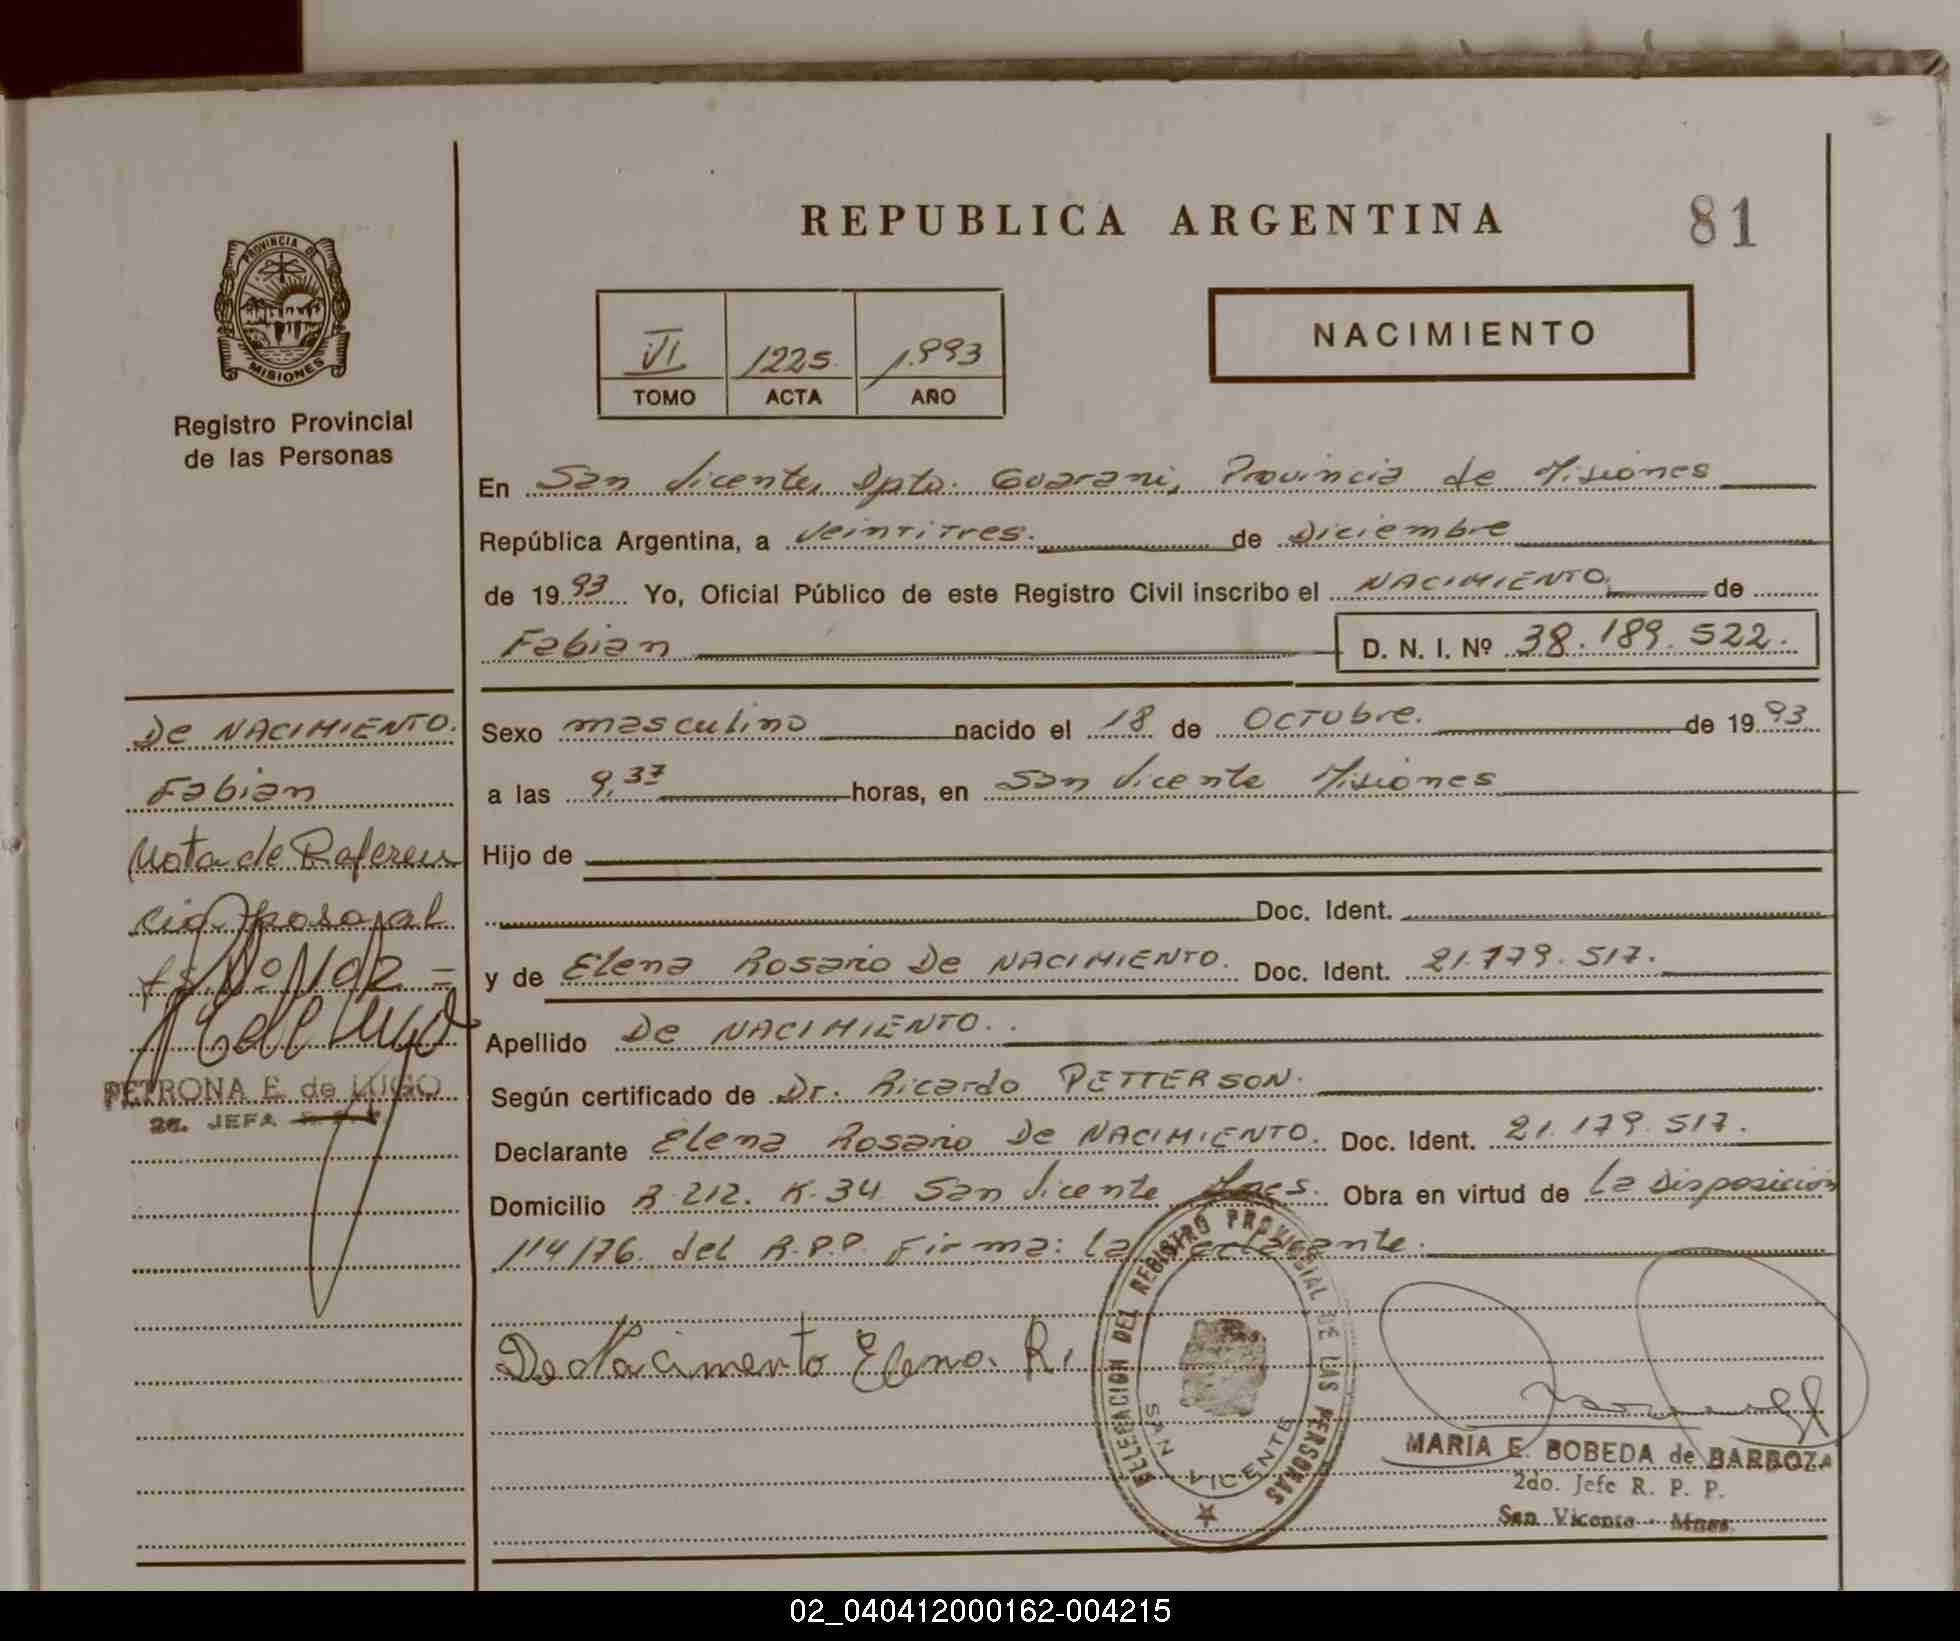 REPUBLICA ARGENTINA
81
PROVINCIA DE
MISIONES
Registro Provincial
de las Personas
VI 1225 1.993
TOMO ACTA AÑO
NACIMIENTO
En San Vicente, Dpto. Guarani, Provincia de Misiones
República Argentina, a Veintitres. de Diciembre
de 1993 Yo, Oficial Público de este Registro Civil inscribo el NACIMIENTO. de
Fabian D. N. I. Nº 38.189.522.
De NACIMIENTO.
Fabian
Nota de Referen
cia
Nº 1102=
PETRONA E. de LUGO
2a. JEFA
Sexo masculino nacido el 18 de Octubre. de 1993
a las 9,37 horas, en San Vicente Misiones
Hijo de
Doc. Ident.
y de Elena Rosario De NACIMIENTO. Doc. Ident. 21.179.517.
Apellido De NACIMIENTO.
Según certificado de Dr. Ricardo PETTERSON.
Declarante Elena Rosario De NACIMIENTO. Doc. Ident. 21.179.517.
Domicilio R.212. K.34 San Vicente Mnes. Obra en virtud de la Disposición
114/76. del R.P.P. Firma: la declarante.
De Nacimento Elena. R.
DELEGACION DEL REGISTRO PROVINCIAL DE LAS PERSONAS
SAN VICENTE
MARIA E. BOBEDA de BARBOZA
2do. Jefe R. P. P.
San Vicente - Mnes.
02_040412000162-004215